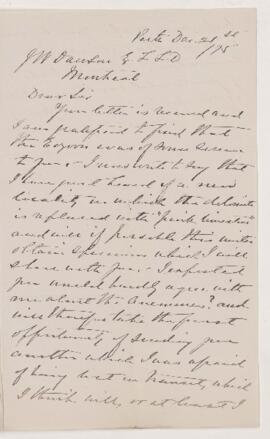 Perth Dec 21st /75
J W Dawson Esq L L D
Montreal
Dear Sir
Your letter is received and
I am gratified to find that
the Eozoon was of some service
to you. I now write to say that
I have just heard of a new
locality in which the dolomite
is replaced with
and will if possible this winter
obtain specimens which I will
share with you. I expected
you would hardly agree with
me about the ? and
will therefore take the first
opportunity of sending you
another which I was afraid
of being lost in transit, which
I think will, or at least I